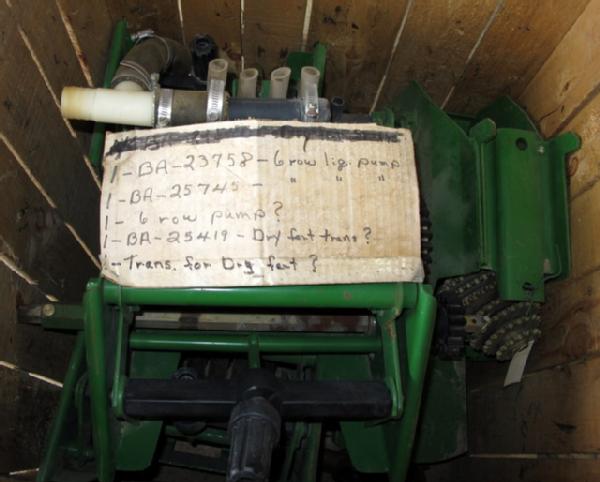 1-BA-23758 - 6 row liq. pump
1-BA-25745 - " " "
1- 6 row pump?
1-BA-25419 - Dry fert trans?
1-Trans. for Dry fert?